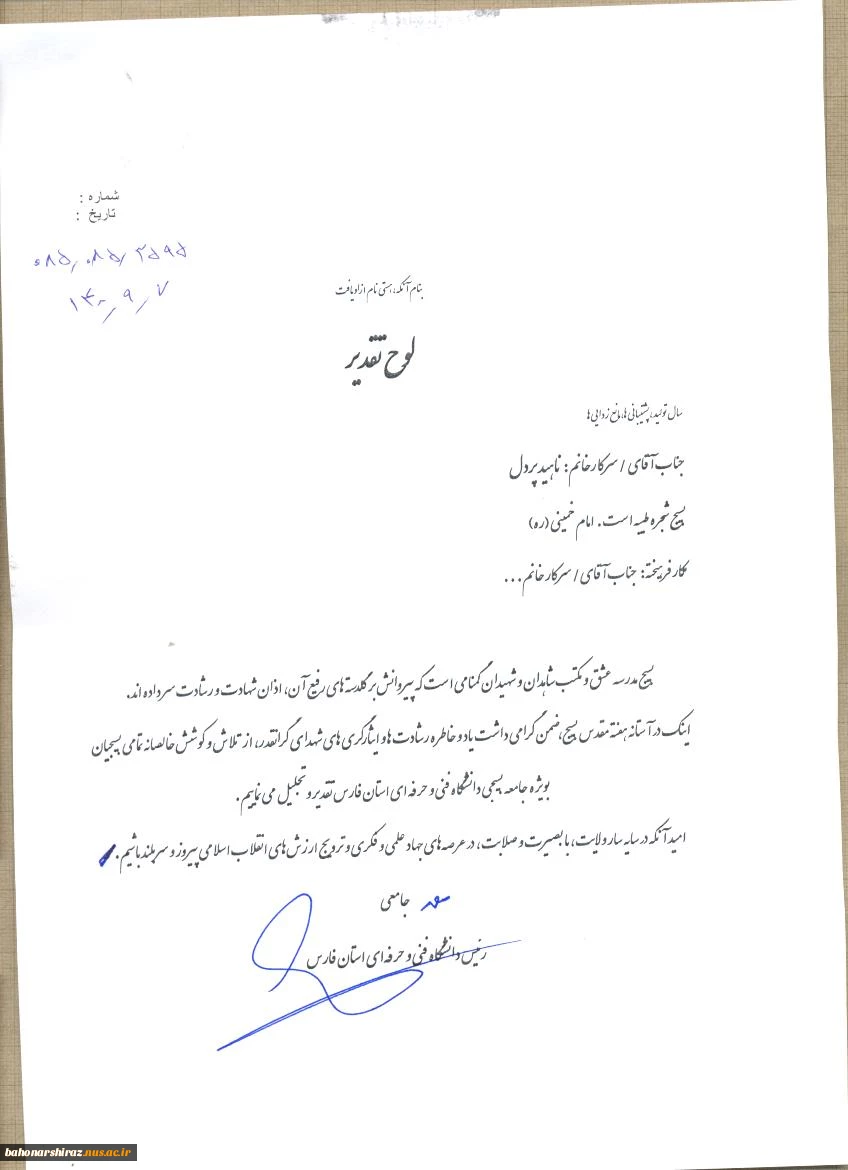 شماره :
تاریخ :
۰۸۵/۰۸۵/۲۵۹۵
۱۴۰۰/۹/۷
بنام آنکه، هستی نام از او یافت
لوح تقدیر
سال تولید، پشتیبانی ها، مانع زدایی ها
جناب آقای / سرکار خانم: ناهید پردل
بسیج شجره طیبه است. امام خمینی (ره)
همکار فرهیخته: جناب آقای / سرکار خانم ...
بسیج مدرسه عشق و مکتب شاهدان و شهیدان گمنامی است که پیروانش بر گلدسته های رفیع آن، اذان شهادت و رشادت سر داده اند.
اینک در آستانه هفته مقدس بسیج، ضمن گرامی داشت یاد و خاطره رشادت ها و ایثارگری های شهدای گرانقدر، از تلاش و کوشش خالصانه تمامی بسیجیان
بویژه جامعه بسیجی دانشگاه فنی و حرفه ای استان فارس تقدیر و تجلیل می نماییم.
امید آنکه در سایه سار ولایت، با بصیرت و صلابت، در عرصه های جهاد علمی و فکری و ترویج ارزش های انقلاب اسلامی پیروز و سربلند باشیم.
جامعی
رئیس دانشگاه فنی و حرفه ای استان فارس
bahonarshiraz.nus.ac.ir